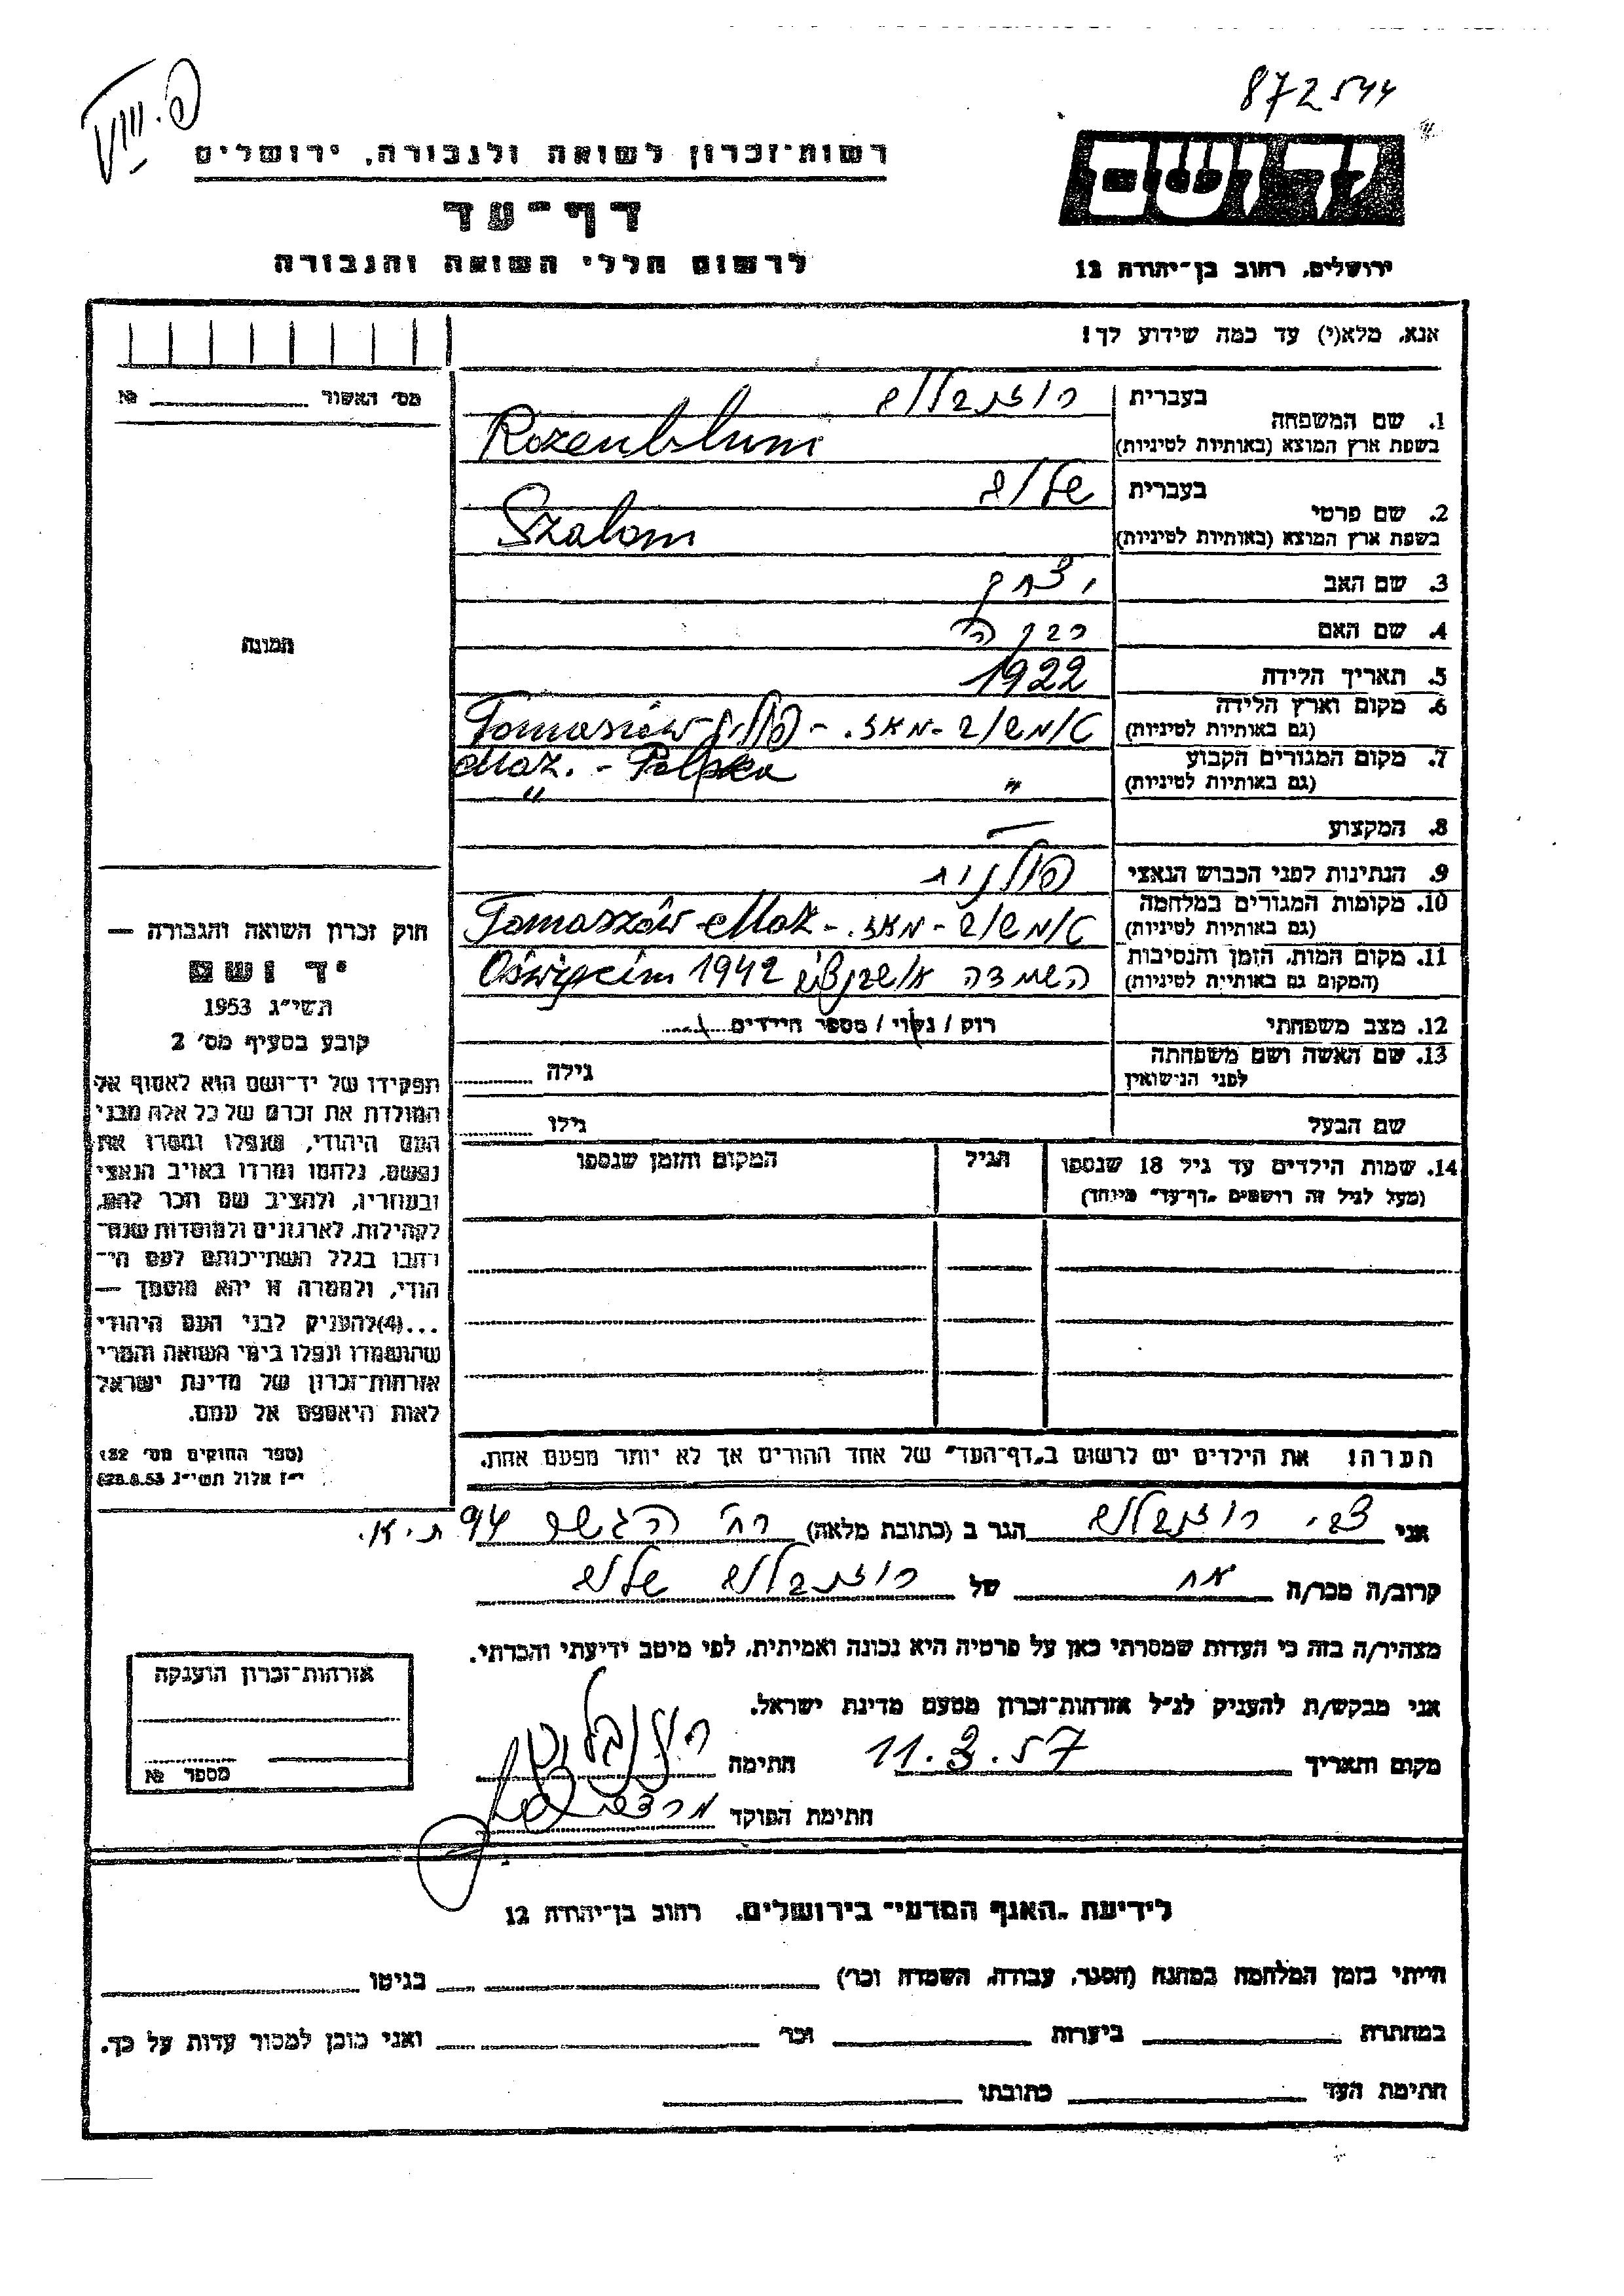 872544
רשות־זכרון לשואה ולגבורה, ירושלים
ידושם
דף־עד
לרשום חללי השואה והגבורה
ירושלים, רחוב בן־יהודה 12
אנא, מלא(י) עד כמה שידוע לך!
מס׳ האשור № 
1. שם המשפחה
בעברית רוזנבלום
בשפת ארץ המוצא (באותיות לטיניות) Rozenblum
2. שם פרטי
בעברית שלום
בשפת ארץ המוצא (באותיות לטיניות) Szalom
3. שם האב יצחק
4. שם האם
תמונה
5. תאריך הלידה 1922
6. מקום וארץ הלידה טומשוב - מאז. - פולין Tomaszów
(גם באותיות לטיניות) Maz. - Polska
7. מקום המגורים הקבוע
(גם באותיות לטיניות) " "
8. המקצוע —
9. הנתינות לפני הכבוש הנאצי פולנית
10. מקומות המגורים במלחמה
(גם באותיות לטיניות) טומשוב - מאז. - Tomaszów - Maz
11. מקום המות, הזמן והנסיבות
(המקום גם באותיות לטיניות) השמדה אושבנצים 1942 Oświęcim
12. מצב משפחתי רוק / נשוי / מספר הילדים
13. שם האשה ושם משפחתה
לפני הנישואין גילה
שם הבעל גילו
14. שמות הילדים עד גיל 18 שנספו
(מעל לגיל זה רושמים „דף־עד” מיוחד)
הגיל
המקום והזמן שנספו
חוק זכרון השואה והגבורה —
יד ושם
תשי״ג 1953
קובע בסעיף מס׳ 2
תפקידו של יד־ושם הוא לאסוף אל
המולדת את זכרם של כל אלה מבני
העם היהודי, שנפלו ומסרו את
נפשם, נלחמו ומרדו באויב הנאצי
ובעוזריו, ולהציב שם וזכר להם,
לקהילות, לארגונים ולמוסדות שנח־
רבו בגלל השתייכותם לעם הי־
הודי, ולמטרה זו יהא מוסמך —
...(4)להעניק לבני העם היהודי
שהושמדו ונפלו בימי השואה והמרי
אזרחות־זכרון של מדינת ישראל
לאות היאספם אל עמם.
(ספר החוקים מס׳ 132
י״ז אלול תשי״ג 28.8.53)
הערה! את הילדים יש לרשום ב„דף־העד” של אחד ההורים אך לא יותר מפעם אחת.
אני צבי רוזנבלום הגר ב (כתובת מלאה) רח׳ 94 ת.א.
קרוב/ה מכר/ה אח של רוזנבלום שלום
מצהיר/ה בזה כי העדות שמסרתי כאן על פרטיה היא נכונה ואמיתית, לפי מיטב ידיעתי והכרתי.
אני מבקש/ת להעניק לנ״ל אזרחות־זכרון מטעם מדינת ישראל.
מקום ותאריך 11.3.57 חתימה רוזנבלום
חתימת הפוקד
אזרחות־זכרון הוענקה
מספר №
לידיעת „האגף המדעי” בירושלים, רחוב בן־יהודה 12
הייתי בזמן המלחמה במחנה (הסגר, עבודה, השמדה וכו׳) בגיטו
במחתרת ביערות וכו׳ ואני מוכן למסור עדות על כך.
חתימת העד כתובתו